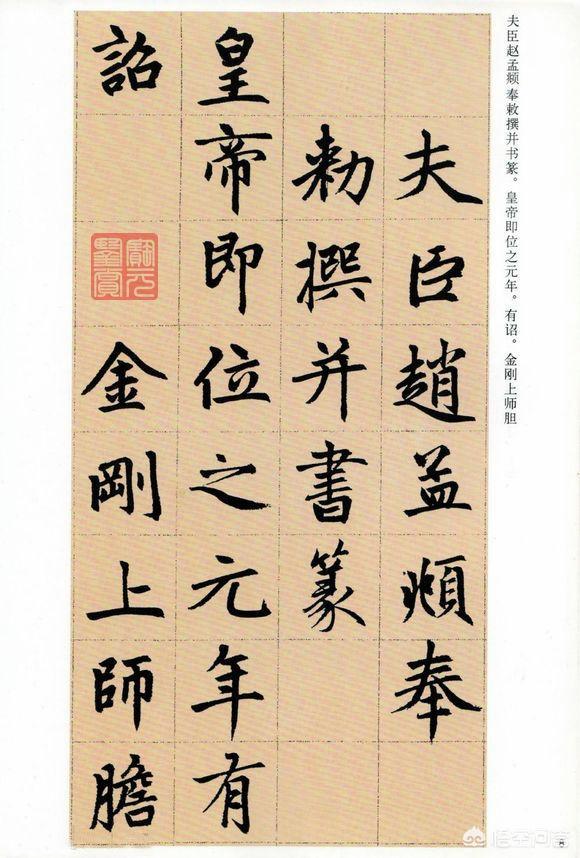 夫臣赵孟頫奉敕撰并书篆。皇帝即位之元年。有诏。金刚上师胆
夫臣趙孟頫奉
勑撰并書篆
皇帝即位之元年有
詔
金剛上師膽
悟空问答